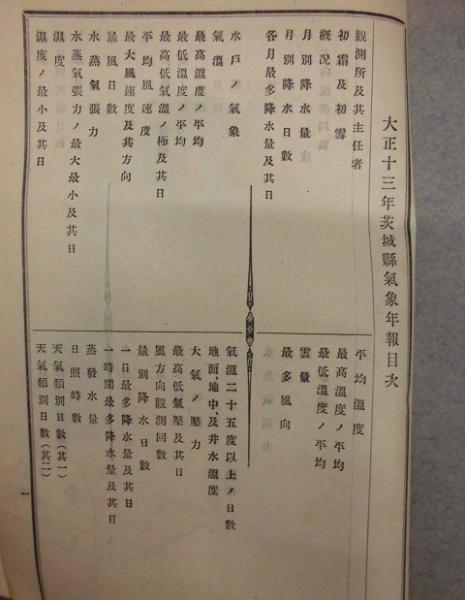 大正十三年茨城縣氣象年報目次
觀測所及其主任者
初霜及初雪
概況
月別降水量
月別降水日數
各月最多降水量及其日
平均溫度
最高溫度ノ平均
最低溫度ノ平均
雲量
最多風向
水戶ノ氣象
氣溫
最高溫度ノ平均
最低溫度ノ平均
最高低氣溫ノ極及其日
平均風速度
最大風速度及其方向
暴風日數
水蒸氣張力
水蒸氣張力ノ最大最小及其日
濕度
濕度ノ最小及其日
氣溫二十五度以上ノ日數
地面、地中、及井水溫度
大氣ノ壓力
最高低氣壓及其日
風方向觀測回數
量別降水日數
一日最多降水量及其日
一時間最多降水量及其日
蒸發水量
日照時數
天氣類別日數(其一)
天氣類別日數(其二)
一